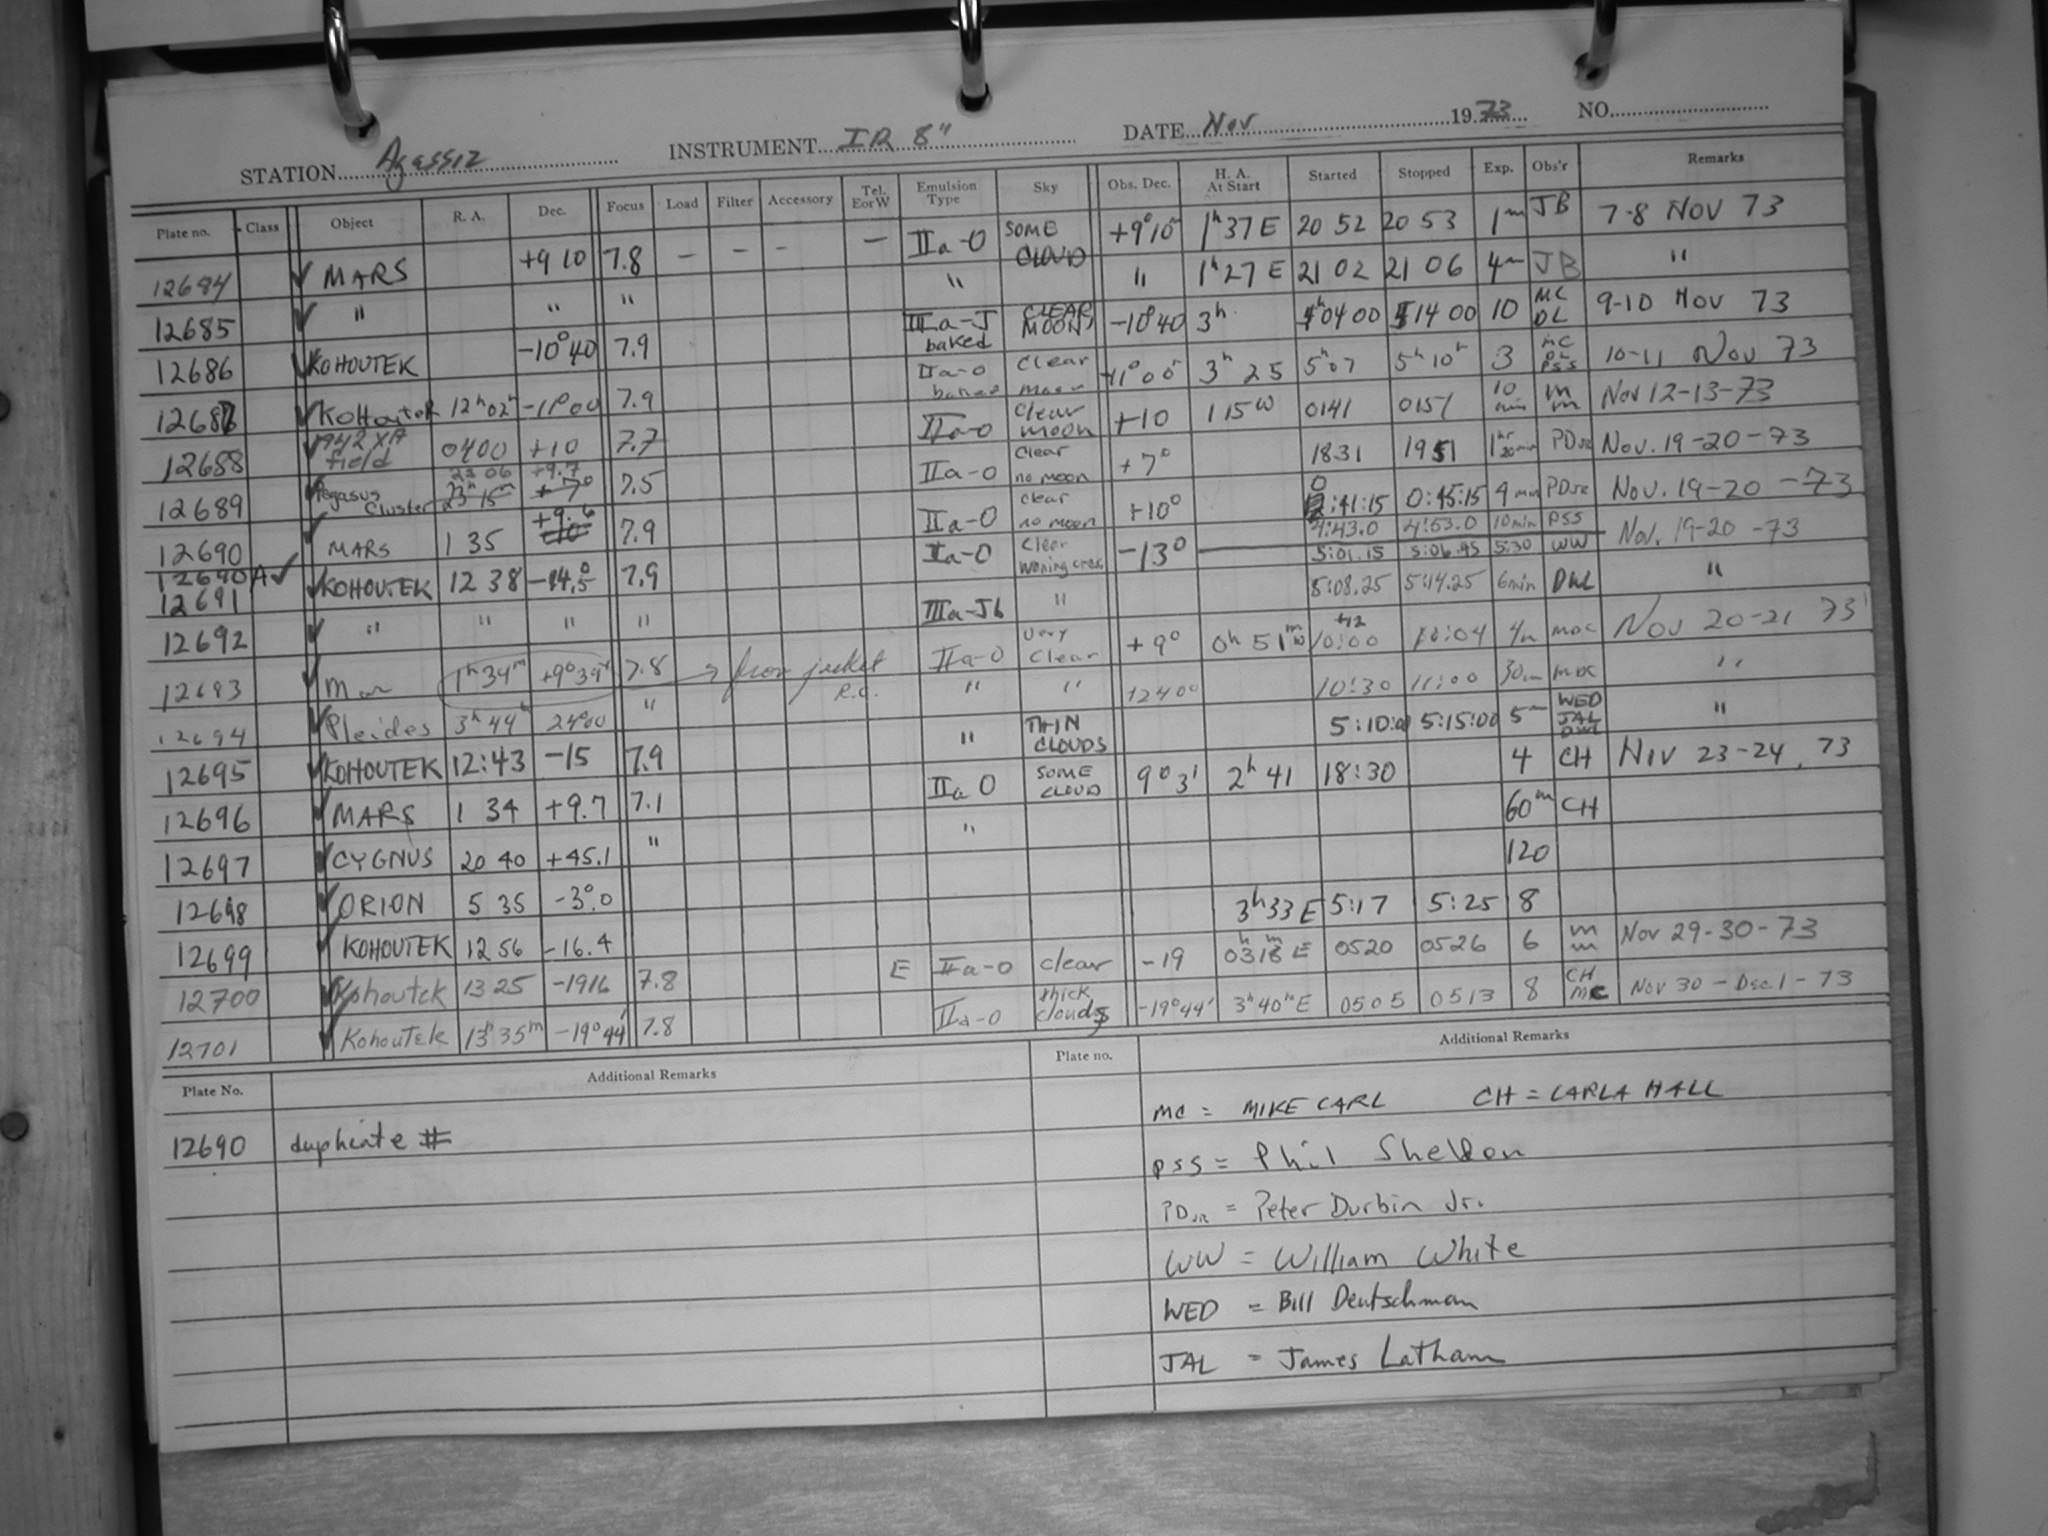 STATION Agassiz INSTRUMENT IR 8" DATE Nov 1973 NO.
Plate no. Class Object R. A. Dec. Focus Load Filter Accessory Tel. E or W Emulsion Type Sky Obs. Dec. H. A. At Start Started Stopped Exp. Obs'r Remarks
12684 ✓ MARS +9 10 7.8 – – – – IIa-O SOME CLOUD +9° 10' 1h 37 E 20 52 20 53 1m JB 7-8 NOV 73
12685 ✓ " " " " " 1h 27 E 21 02 21 06 4m JB "
12686 ✓ KOHOUTEK -10° 40 7.9 IIIa-J baked CLEAR, MOON -10° 40 3h 04 00 14 00 10 MC DL 9-10 NOV 73
12687 ✓ KOHoutek 12h 02m -11°00 7.9 IIa-O baked Clear moon -11° 00' 3h 25 5h 07 5h 10m 3 MC DL PSS 10-11 Nov 73
12688 ✓ 1942 XA field 0400 +10 7.7 IIa-O Clear moon +10 1 15 W 0141 0151 10 min m m Nov 12-13-73
12689 ✓ Pegasus Cluster 23 06 23h 15m +9.7 +7° 7.5 IIa-O Clear no moon +7° 1831 1951 1hr 20min PDJR Nov. 19-20-73
12690 ✓ MARS 1 35 +9.6 +10 7.9 IIa-O clear no moon +10° 0:41:15 0:45:15 4 min PDJR Nov. 19-20-73
12690A ✓ 4:43.0 4:53.0 10min PSS
12691 ✓ KOHOUTEK 12 38 -14.5° 7.9 IIa-O Clear Waning cres. -13° 5:01.15 5:06.45 5:30 WW Nov. 19-20-73
12692 ✓ " " " " IIIa-Jb " 5:08.25 5:14.25 6min DWL "
12693 ✓ Mars 1h 34m +9° 39' 7.8 → from jacket R.C. IIa-O Very Clear +9° 0h 51m W +12 10:00 10:04 4m MDC Nov 20-21 73
12694 ✓ Pleides 3h 44m 24°00 " " " +24 0° 10:30 11:00 30m MDC "
12695 ✓ KOHOUTEK 12:43 -15 7.9 " THIN CLOUDS 5:10:0 5:15:00 5m WED JAL DWL "
12696 ✓ MARS 1 34 +9.7 7.1 IIa O SOME CLOUD 9° 3' 2h 41 18:30 4 CH Nov 23-24, 73
12697 ✓ CYGNUS 20 40 +45.1 " " 60m CH
12698 ✓ ORION 5 35 -3.°0 120
12699 ✓ KOHOUTEK 12 56 -16.4 3h 33 E 5:17 5:25 8
12700 ✓ Kohoutek 13 25 -1916 7.8 E IIa-O clear -19 03h 18m E 0520 0526 6 m m Nov 29-30-73
12701 ✓ Kohoutek 13h 35m -19° 44' 7.8 IIa-O thick clouds -19° 44' 3h 40m E 0505 0513 8 CH MC Nov 30 - Dec. 1 - 73
Plate No. Additional Remarks Plate no. Additional Remarks
MC = MIKE CARL CH = CARLA HALL
12690 duplicate #
PSS = Phil Sheldon
PDJR = Peter Durbin Jr.
WW = William White
WED = Bill Deutschman
JAL = James Latham